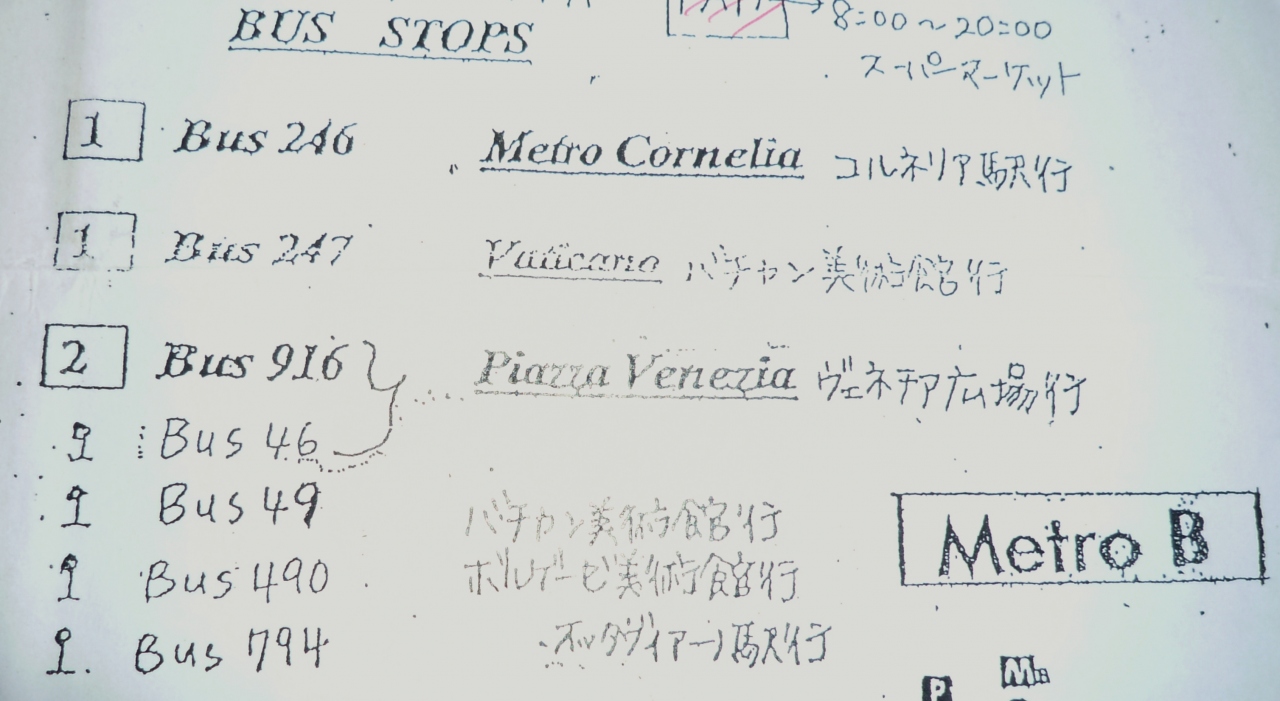 BUS STOPS
8:00～20:00
スーパーマーケット
1 Bus 246 Metro Cornelia コルネリア駅行
1 Bus 247 Vaticano バチャン美術館行
2 Bus 916 Piazza Venezia ヴェネチア広場行
Bus 46
Bus 49 バチカン美術館行
Bus 490 ボルゲーゼ美術館行
Metro B
Bus 794 オッタヴィアーノ駅行
P M